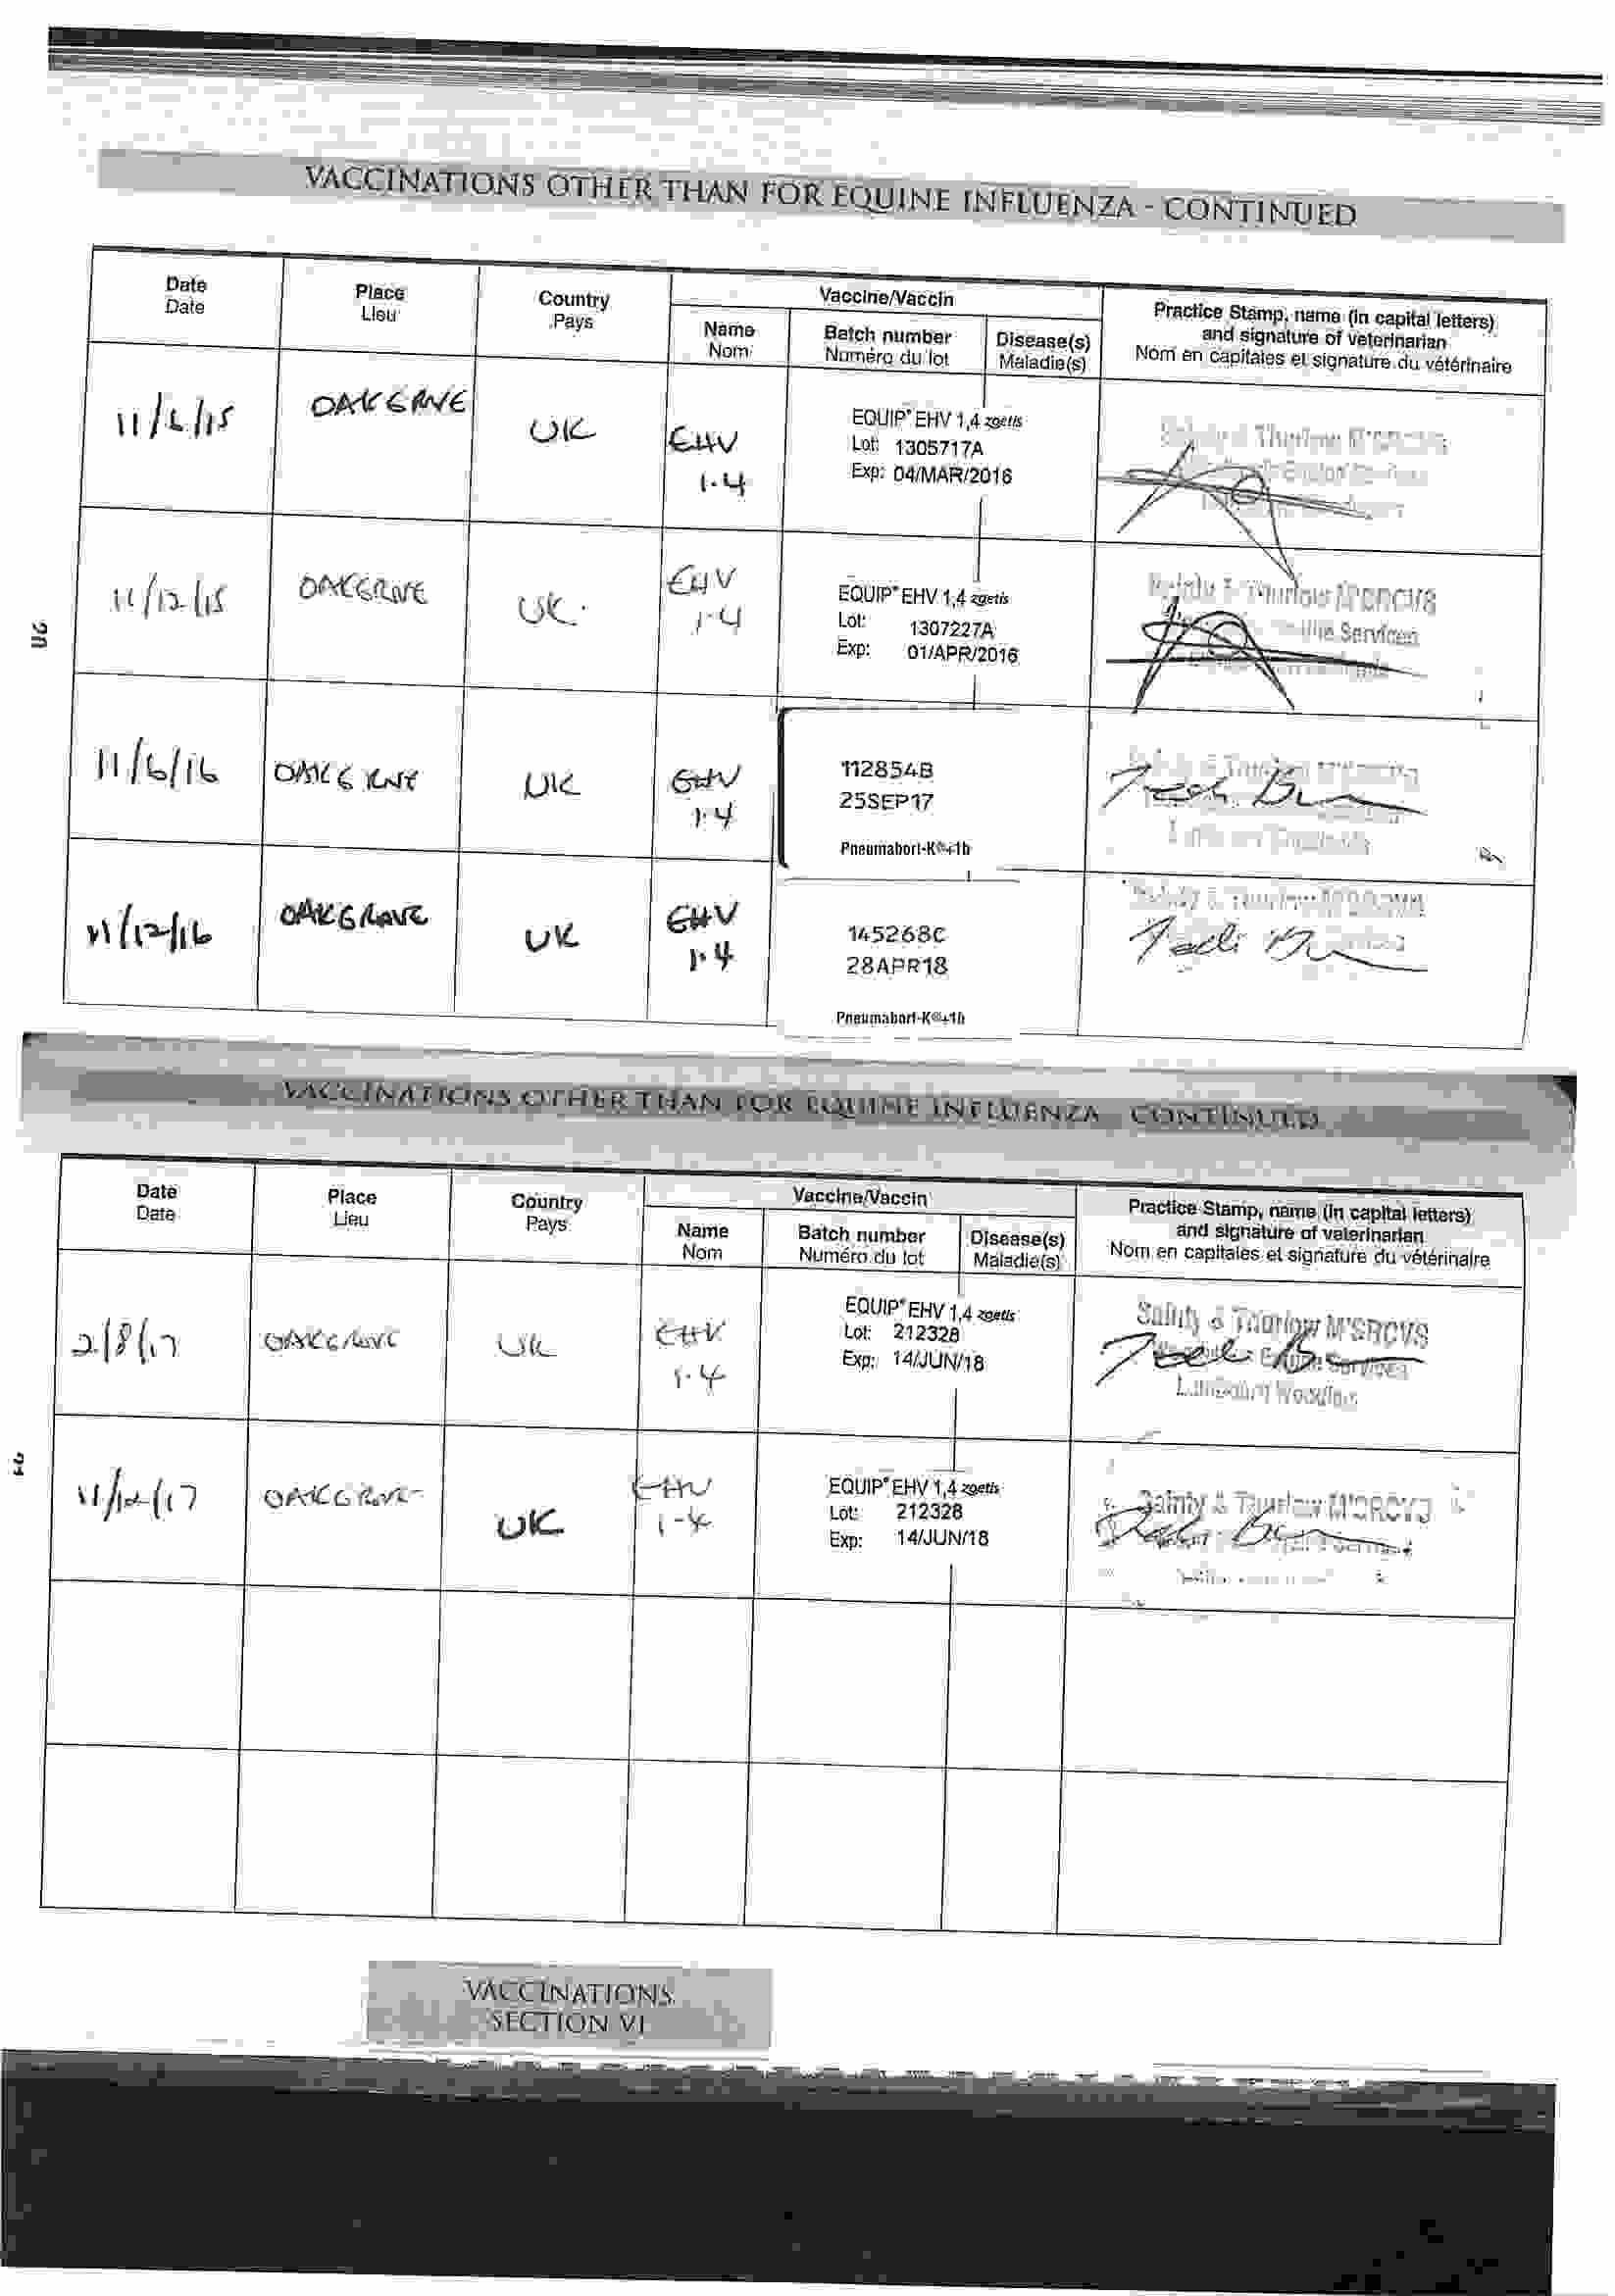 VACCINATIONS OTHER THAN FOR EQUINE INFLUENZA - CONTINUED
Date
Date
Place
Lieu
Country
Pays
Vaccine/Vaccin
Name
Nom
Batch number
Numéro du lot
Disease(s)
Maladie(s)
Practice Stamp, name (in capital letters)
and signature of veterinarian
Nom en capitales et signature du vétérinaire
11/6/15
OAKGROVE
UK
EHV
1.4
EQUIP® EHV 1,4 zoetis
Lot: 1305717A
Exp: 04/MAR/2016
Thurlow M'SRCVS
11/12/15
OAKGROVE
UK.
EHV
1.4
EQUIP® EHV 1,4 zoetis
Lot: 1307227A
Exp: 01/APR/2016
& Thurlow M'SRCVS
Services
11/6/16
OAKGROVE
UK
EHV
1.4
112854B
25SEP17
Pneumabort-K®+1b
11/12/16
OAKGROVE
UK
EHV
1.4
145268C
28APR18
Pneumabort-K®+1b
VACCINATIONS OTHER THAN FOR EQUINE INFLUENZA - CONTINUED
Date
Date
Place
Lieu
Country
Pays
Vaccine/Vaccin
Name
Nom
Batch number
Numéro du lot
Disease(s)
Maladie(s)
Practice Stamp, name (in capital letters)
and signature of veterinarian
Nom en capitales et signature du vétérinaire
2/8/17
OAKGROVE
UK
EHV
1.4
EQUIP® EHV 1,4 zoetis
Lot: 212328
Exp: 14/JUN/18
Sainty & Thurlow M'SRCVS
Equine Services
11/12/17
OAKGROVE
UK
EHV
1-4
EQUIP® EHV 1,4 zoetis
Lot: 212328
Exp: 14/JUN/18
Sainty & Thurlow M'SRCVS
VACCINATIONS
SECTION VI